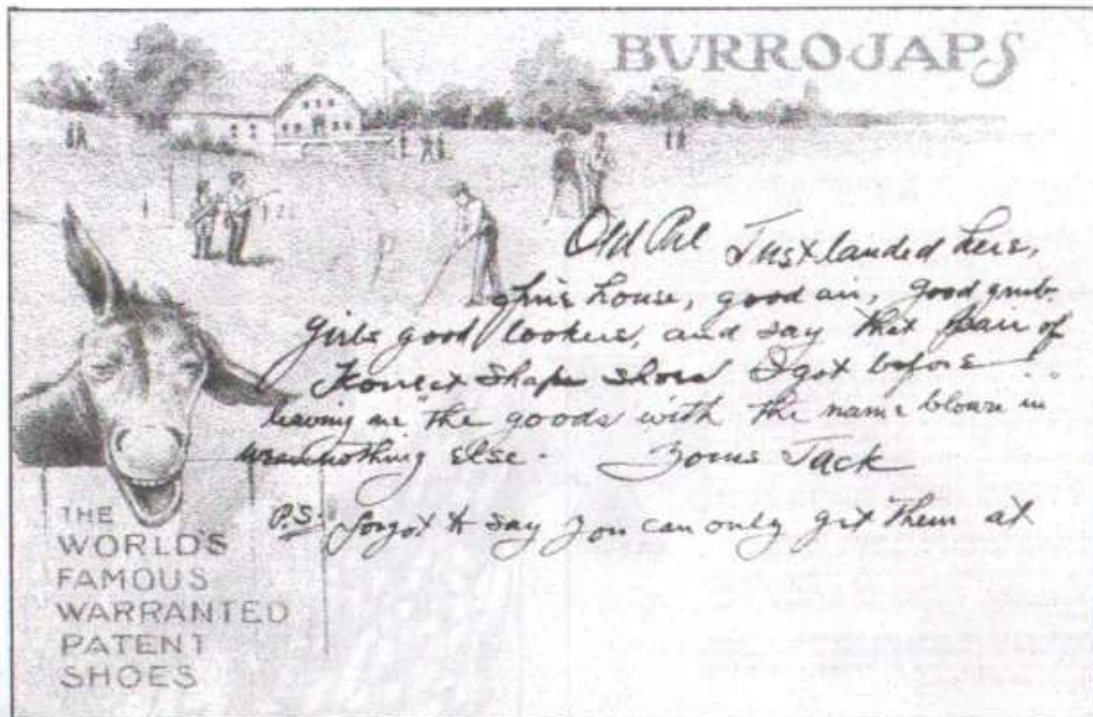 BURROJAPS
Old Pal Just landed here,
fine house, good air, good grub.
girls good lookers, and say that pair of
Korrect Shape shoes I got before
leaving are "the goods with the name blown in"
wear nothing else. Yours Jack
P.S. forgot to say you can only get them at
THE
WORLD'S
FAMOUS
WARRANTED
PATENT
SHOES